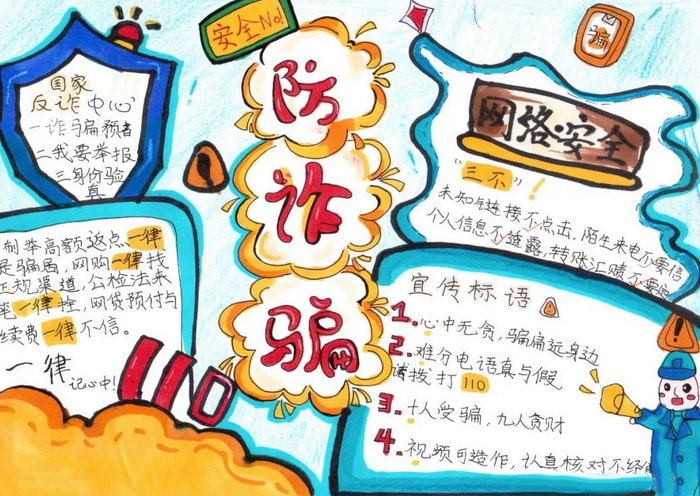 安全No!
防
诈
骗
骗
国家
反诈中心
一诈骗预
二我要举报
三身份验
真
网络安全
"三不"!
未知链接不点击,陌生来电不要信
个人信息不泄露,转账汇款不要
制举高额返点一律
是骗局,网购一律找
正规渠道,公检法来
一律挂,网贷预付与
续费一律不信。
一律
记心中!
110
宣传标语
1.心中无贪,骗痛远身边
2.难分电语真与假
请拨打110
3.十人受骗,九人贪财
4.视频可造作,认真核对不经